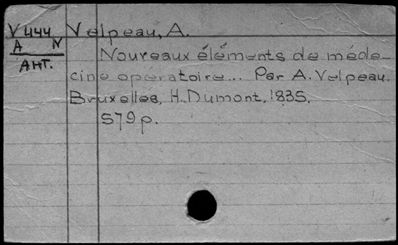 V444 Velpeau, A.
A N Nouveaux éléments de méde-
АНТ. cine operatoire... Par A. Velpeau.
Bruxelles, H. Dumont, 1835.
579p.